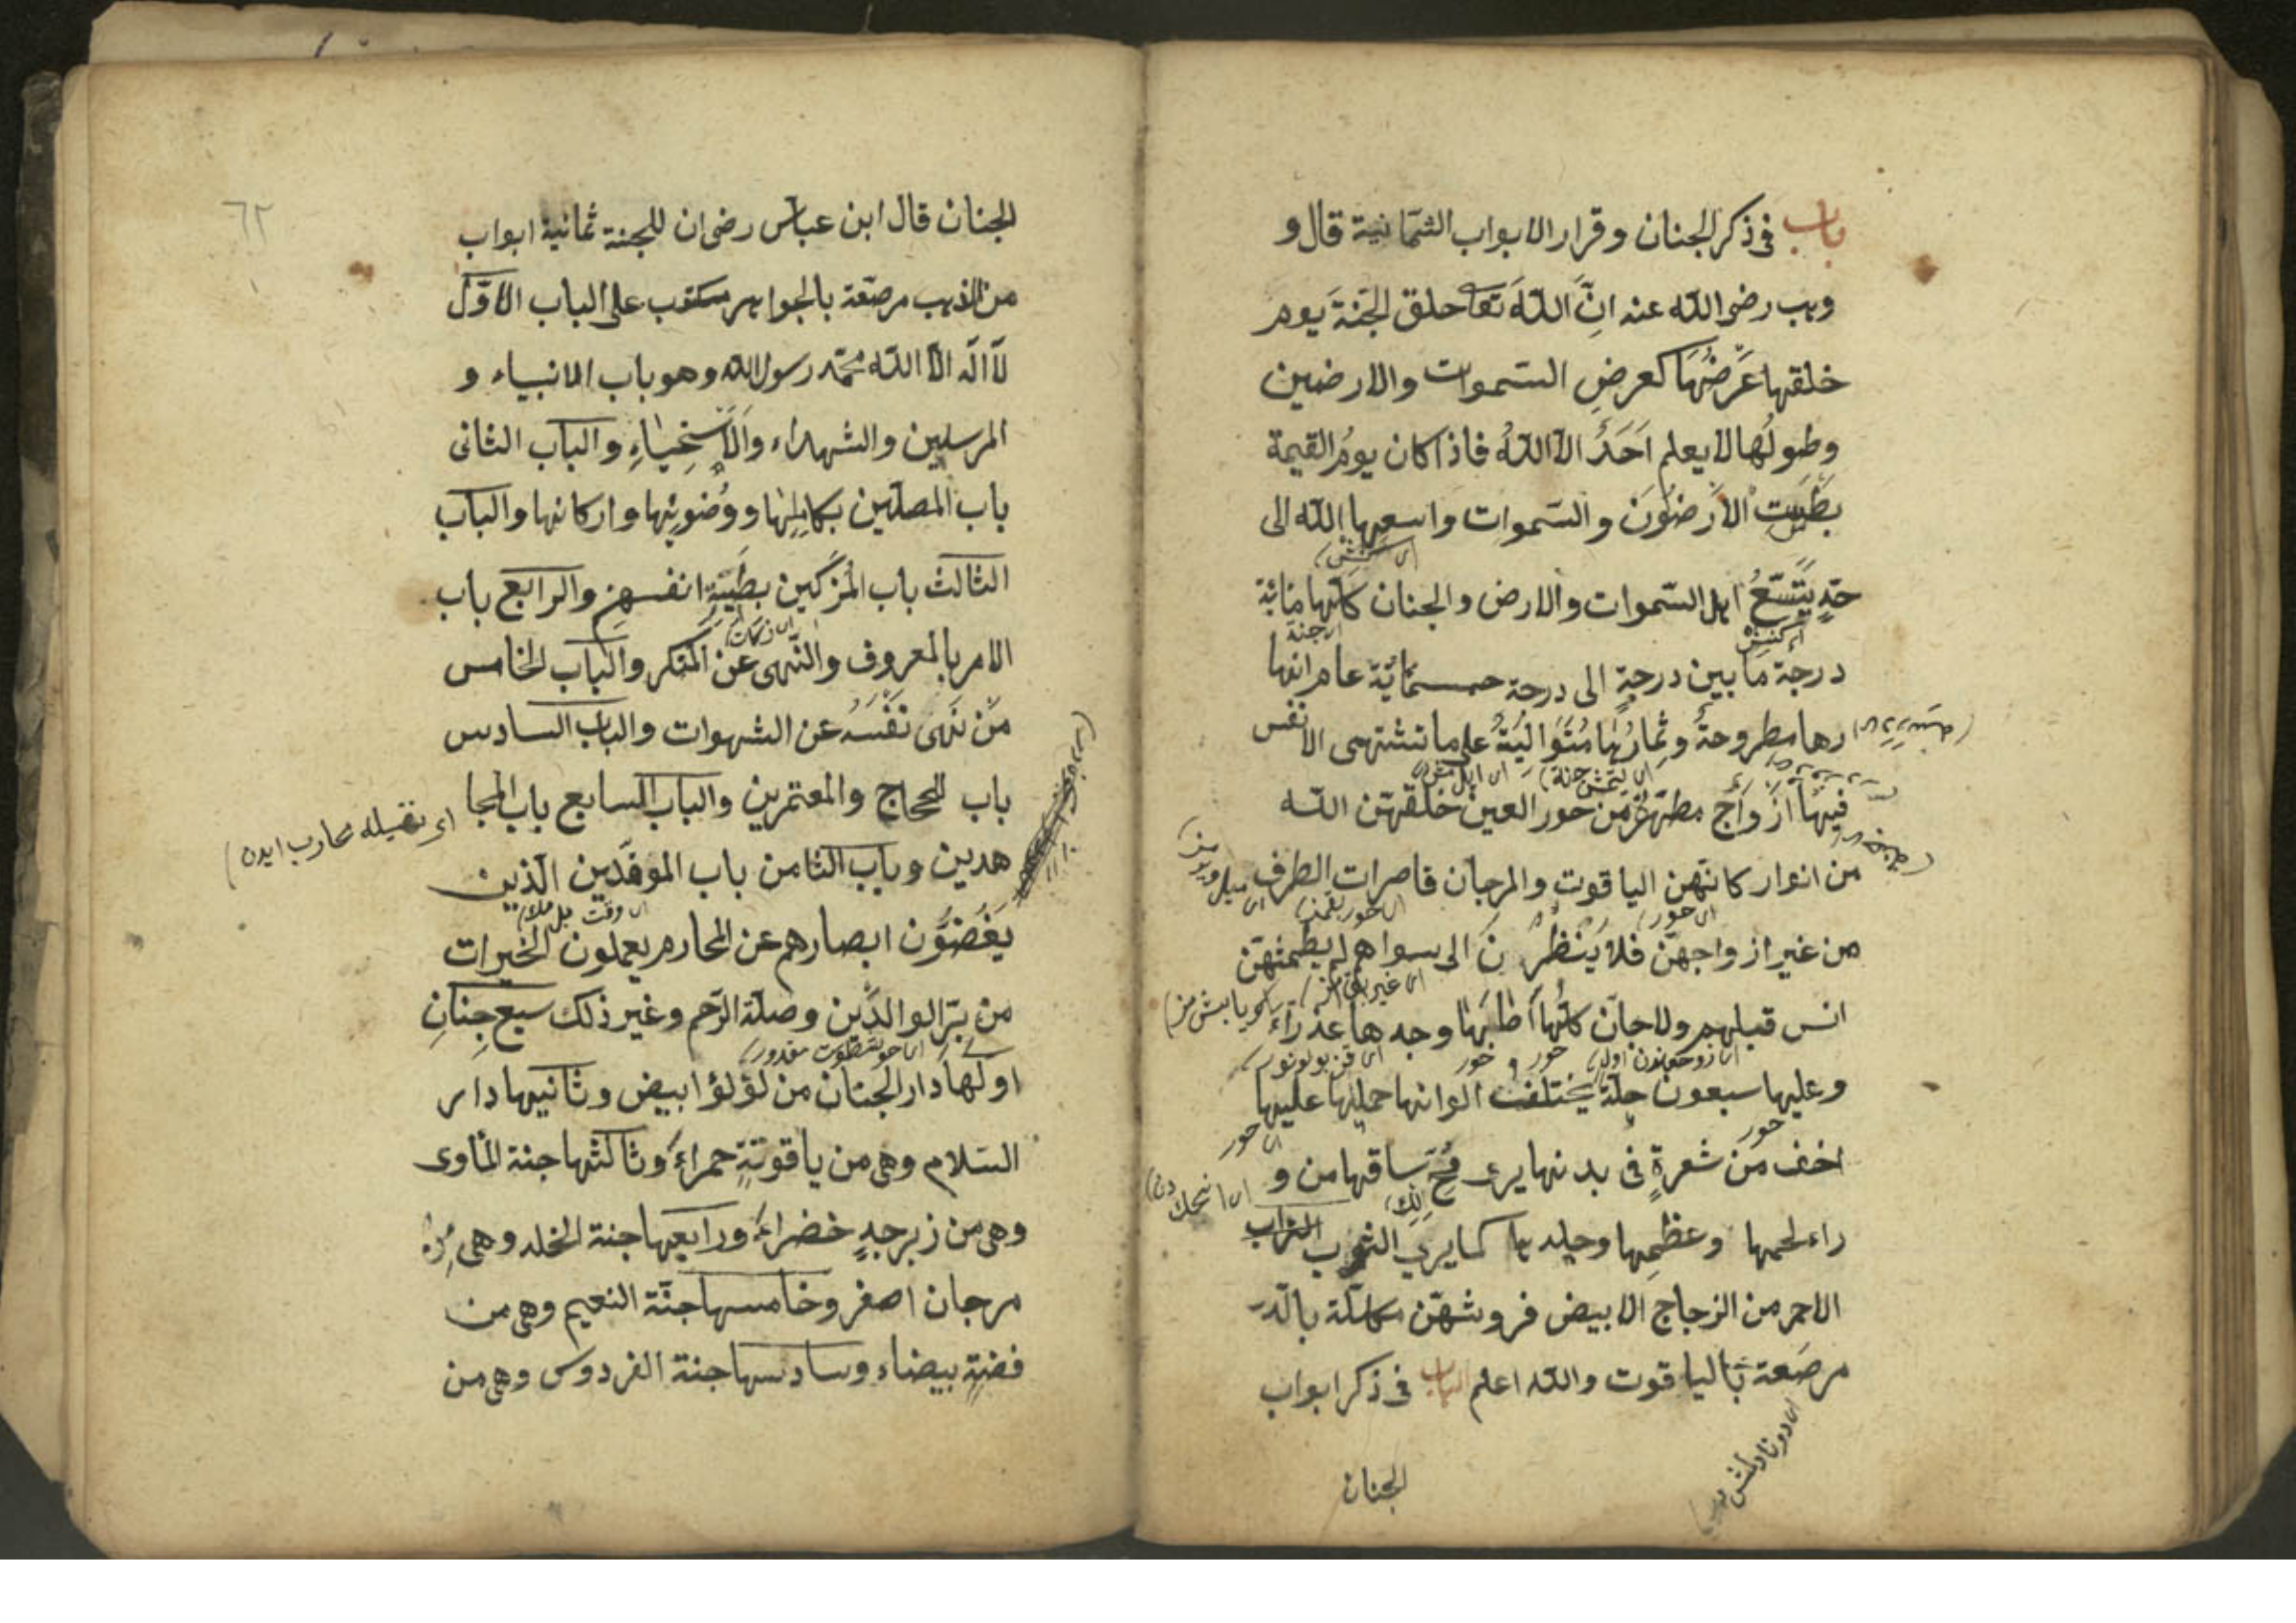 باب في ذكر الجنان وقرار الابواب الثمانية قال و
وهب رضى الله عنه انّ اللهَ تعا حلق الجنةَ يوم
خلقها عَرْضُهَا كعرضِ السّموات والارضين
وطولُها لا يعلم اَحَدٌ الا اللهُ فاذا كان يومُ القيمة
بطَلَت الاَرضُونَ والسّموات واسعها الله الى
حدٍّ يتّسعُ اهل السّموات والارض والجنان كلّها مائة
درجة ما بين درجةٍ الى درجة خمسمائة عام انها
رها مطروحةٌ وثمارُها مُتَوَالِيَةٌ على ما تشتهى الانفس
فيها اَزْوَاج مطهّرة من حور العين خلقهنّ الله
من انوار كانّهن الياقوت والمرجان قاصرات الطرف
من غير ازواجهنّ فلا يَنْظُرْنَ الى سواهم لم يطمثهنّ
انس قبلهم ولا جانّ كلّها وجدها عذراءَ
وعليها سبعون حلّة يختلفت الوانها حملها عليها
اخف من شعرةٍ فى بدنها يرى مُخّ ساقها من و
راء لحمها وعظمِها وجلدها كما يرى الشراب
الاحمر من الزجاج الابيض فروشهنّ مكلّلة بالدّر
مرصّعة بالياقوت والله اعلم الباب فى ذكر ابواب
الجنان
٦٢
الجنان قال ابن عباس رضى ان للجنة ثمانية ابواب
من الذهب مرصّعة بالجواهر مكتوب على الباب الاوّل
لآ اله الاّ الله محمّد رسول الله وهو باب الانبياء و
المرسلين والشهداء والاَسْخِياءِ والباب الثانى
باب المصلّين بكاملها ووُضوئِها واركانها والباب
الثالث باب المُزكّين بطَيّبَةِ انفسهِم والرابع باب
الامر بالمعروف والنّهى عن المنكر والباب الخامس
مَنْ نَهَى نَفْسَهُ عن الشهوات والباب السادس
باب للحجاج والمعتمرين والباب السابع باب المجا
هدين وباب الثامن باب الموحّدين الّذين
يَغُضُّون ابصارهم عن المحارم يعملون الخيرات
من برّ الوالدَين وصلة الرّحم وغير ذلك سبع جِنَانٍ
اولها دار الجنان من لؤلؤ ابيض وثانيها دار
السّلام وهى من ياقوتةٍ حمراءَ وثالثها جنة المأوى
وهى من زبرجدٍ خضراءَ ورابعها جنة الخلد وهى من
مرجان اصفر وخامسها جنّة النعيم وهى من
فضةٍ بيضاء وسادسها جنة الفردوس وهى من